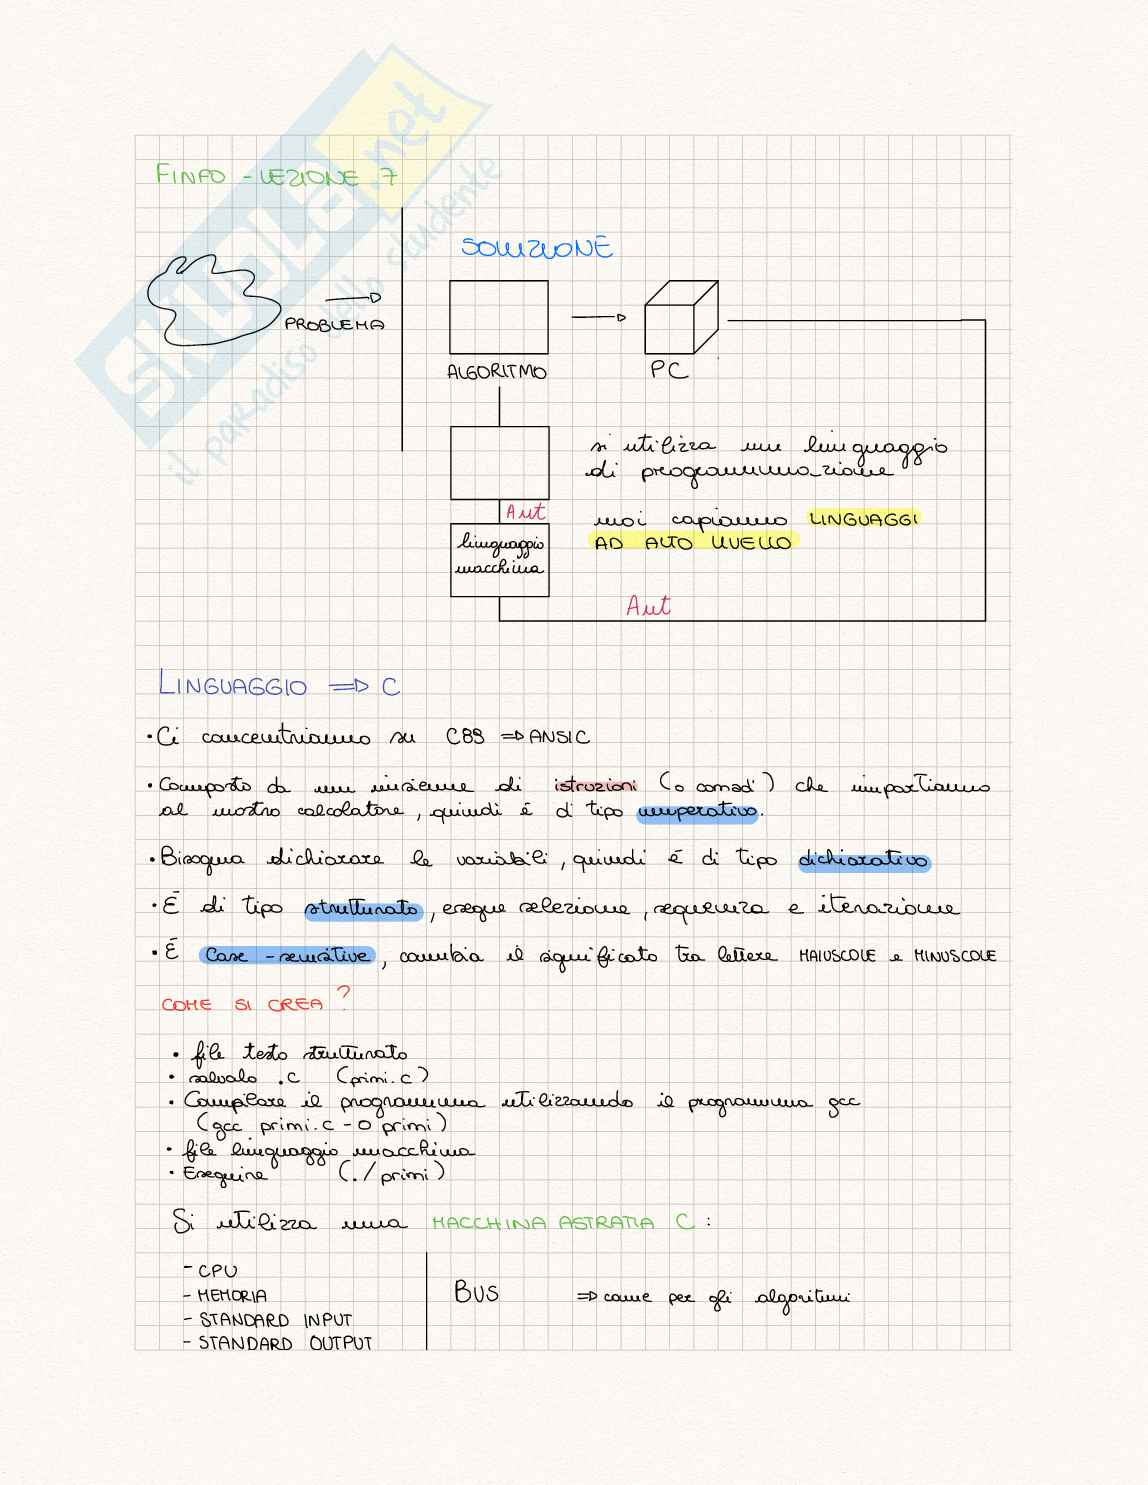 SKUOLA.net
il paradiso dello studente
FINFO - LEZIONE 7
SOLUZIONE
PROBLEMA
ALGORITMO
PC
si utilizza un linguaggio
di programmazione
Aut
noi capiamo LINGUAGGI
AD ALTO LIVELLO
linguaggio
macchina
Aut
LINGUAGGIO => C
• Ci concentriamo su C89 => ANSI C
• Composto da un insieme di istruzioni (o comadi) che impartiamo
al nostro calcolatore, quindi é d tipo imperativo.
• Bisogna dichiarare le variabili, quindi é di tipo dichiarativo
• É di tipo strutturato, esegue selezione, sequenza e iterazione
• É Case-sensitive, cambia il significato tra lettere MAIUSCOLE e MINUSCOLE
COME SI CREA?
• file testo strutturato
• salvalo .c (primi.c)
• Compilare il programma utilizzando il programma gcc
(gcc primi.c -o primi)
• file linguaggio macchina
• Eseguire (./primi)
Si utilizza una MACCHINA ASTRATTA C:
- CPU
- MEMORIA
- STANDARD INPUT
- STANDARD OUTPUT
BUS => come per gli algoritmi